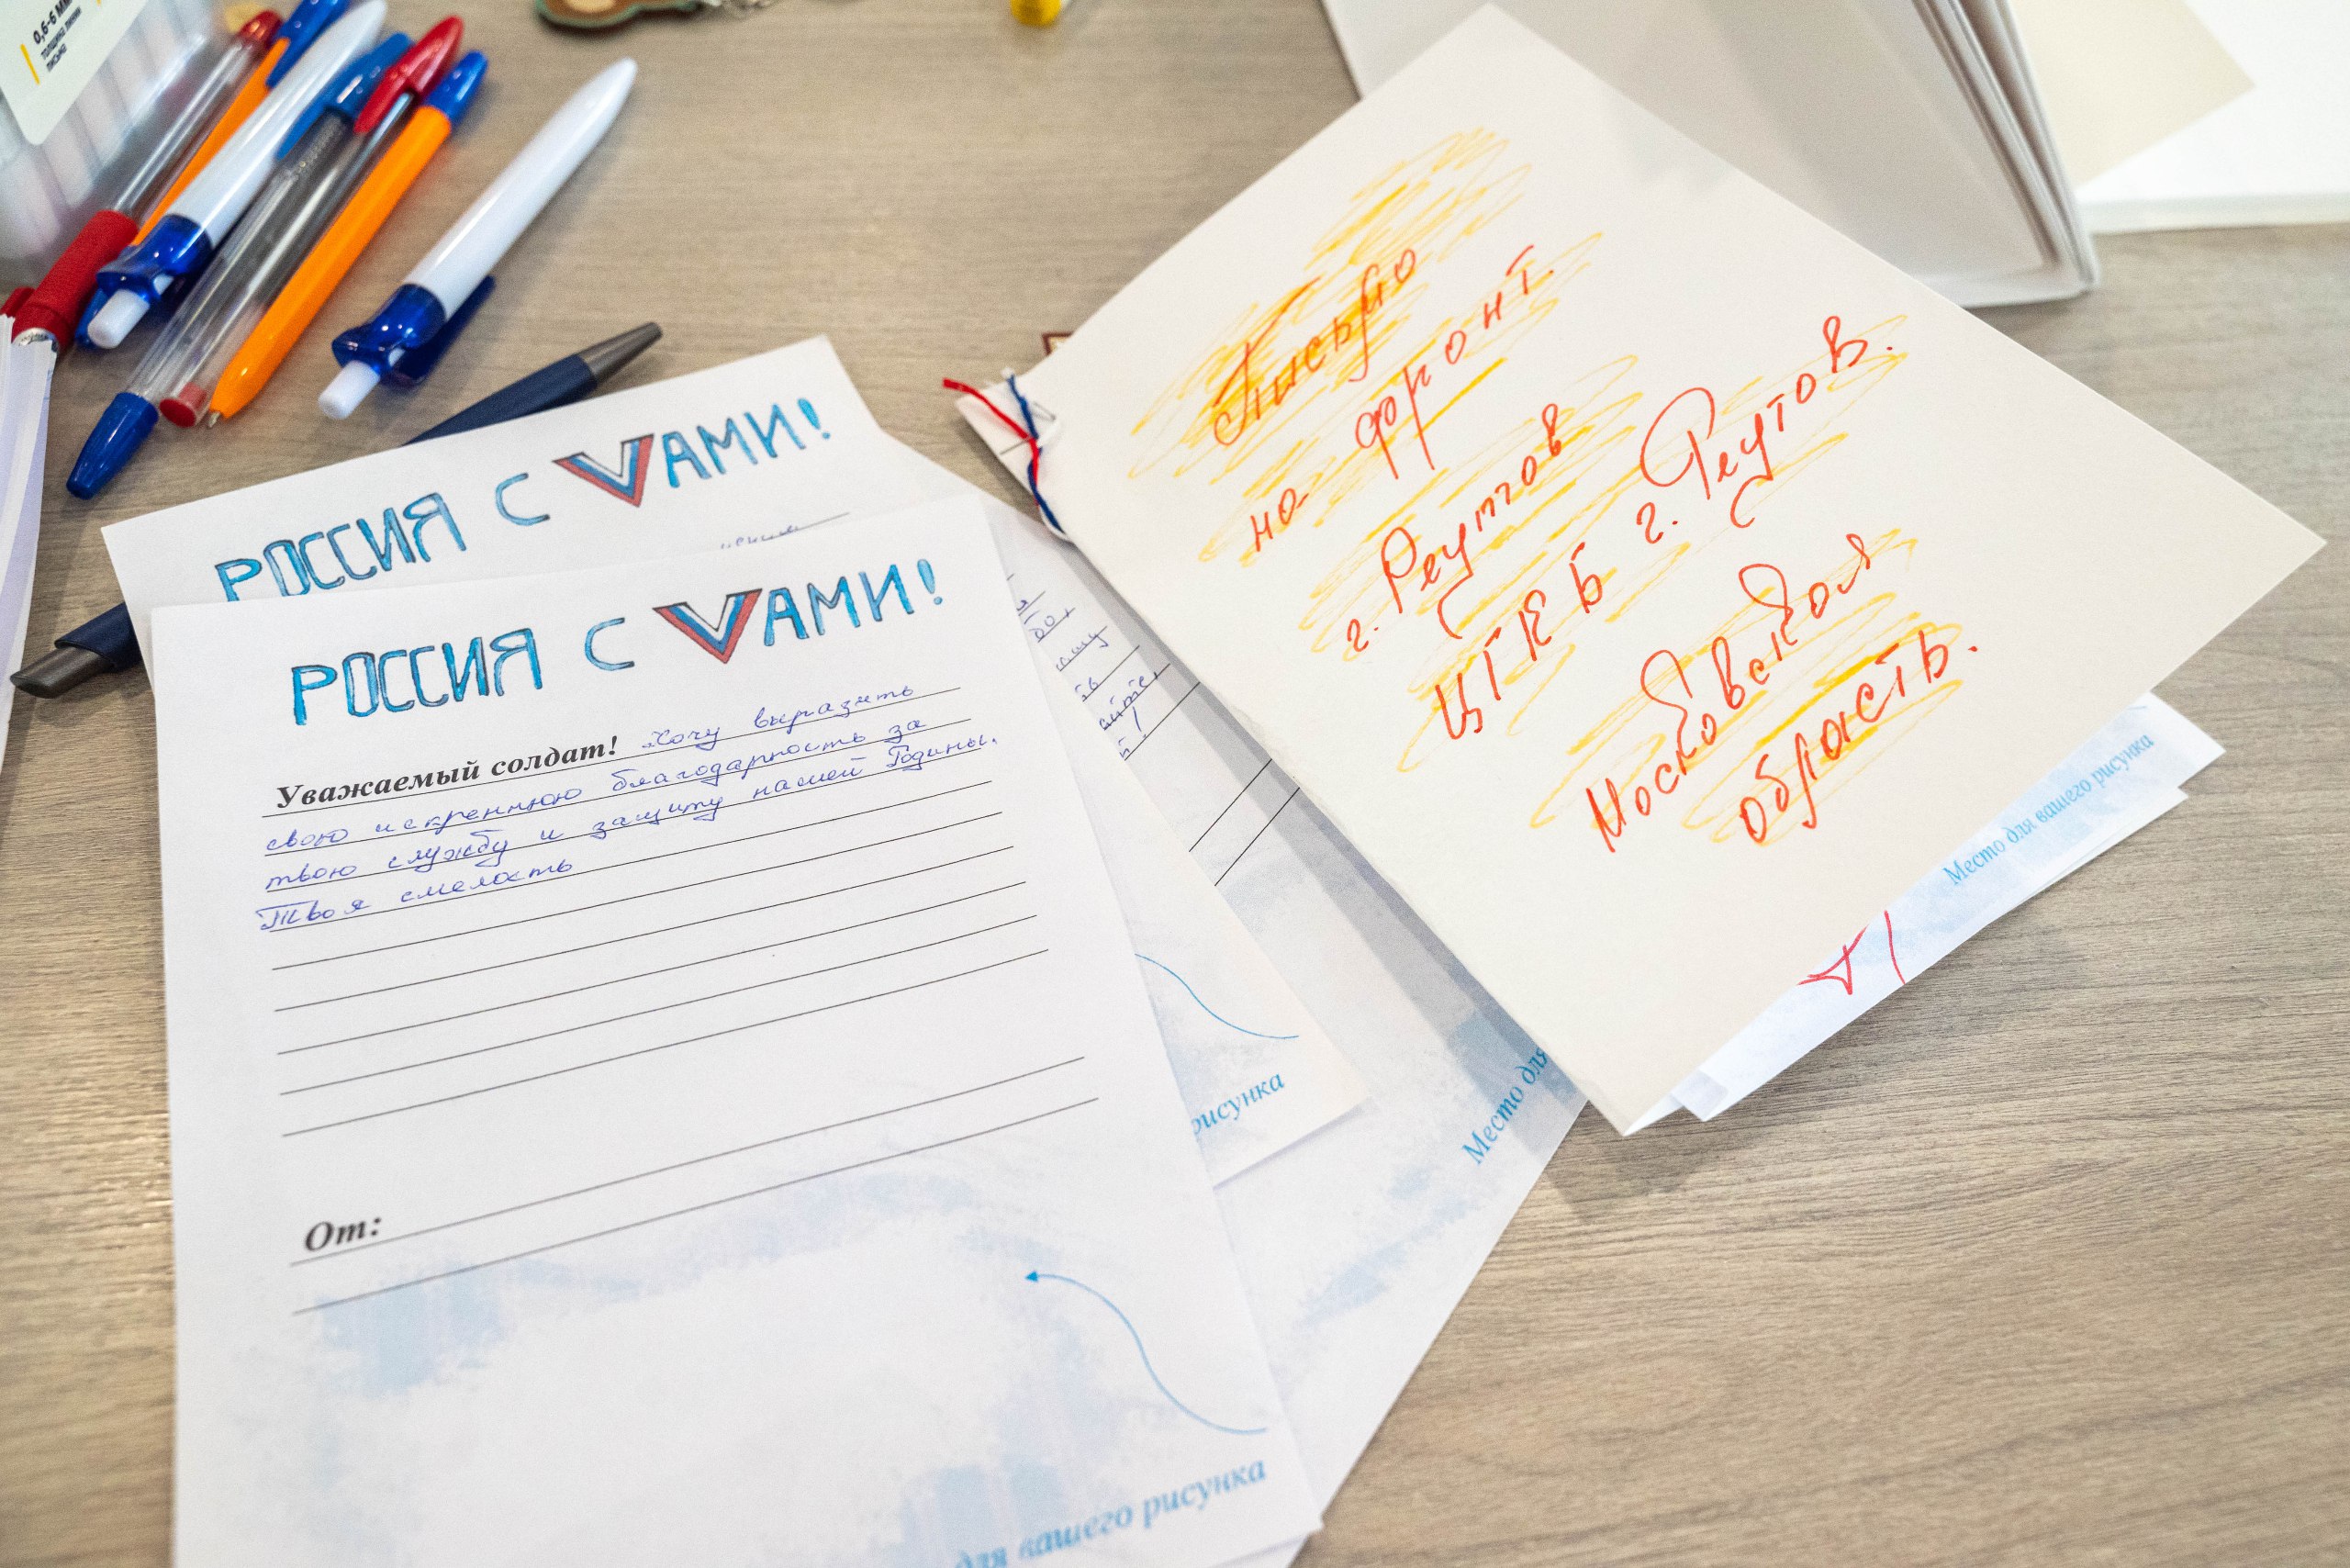 0,6-6 мм
толщина линии
письма
РОССИЯ С VАМИ!
РОССИЯ С VАМИ!
Уважаемый солдат! Хочу выразить
свою искреннюю благодарность за
твою службу и защиту нашей Родины.
Твоя смелость
От:
для вашего рисунка
рисунка
Место для
Письмо
на фронт
г. Реутов
ЦГКБ г. Реутов.
Московская
область.
Место для вашего рисунка